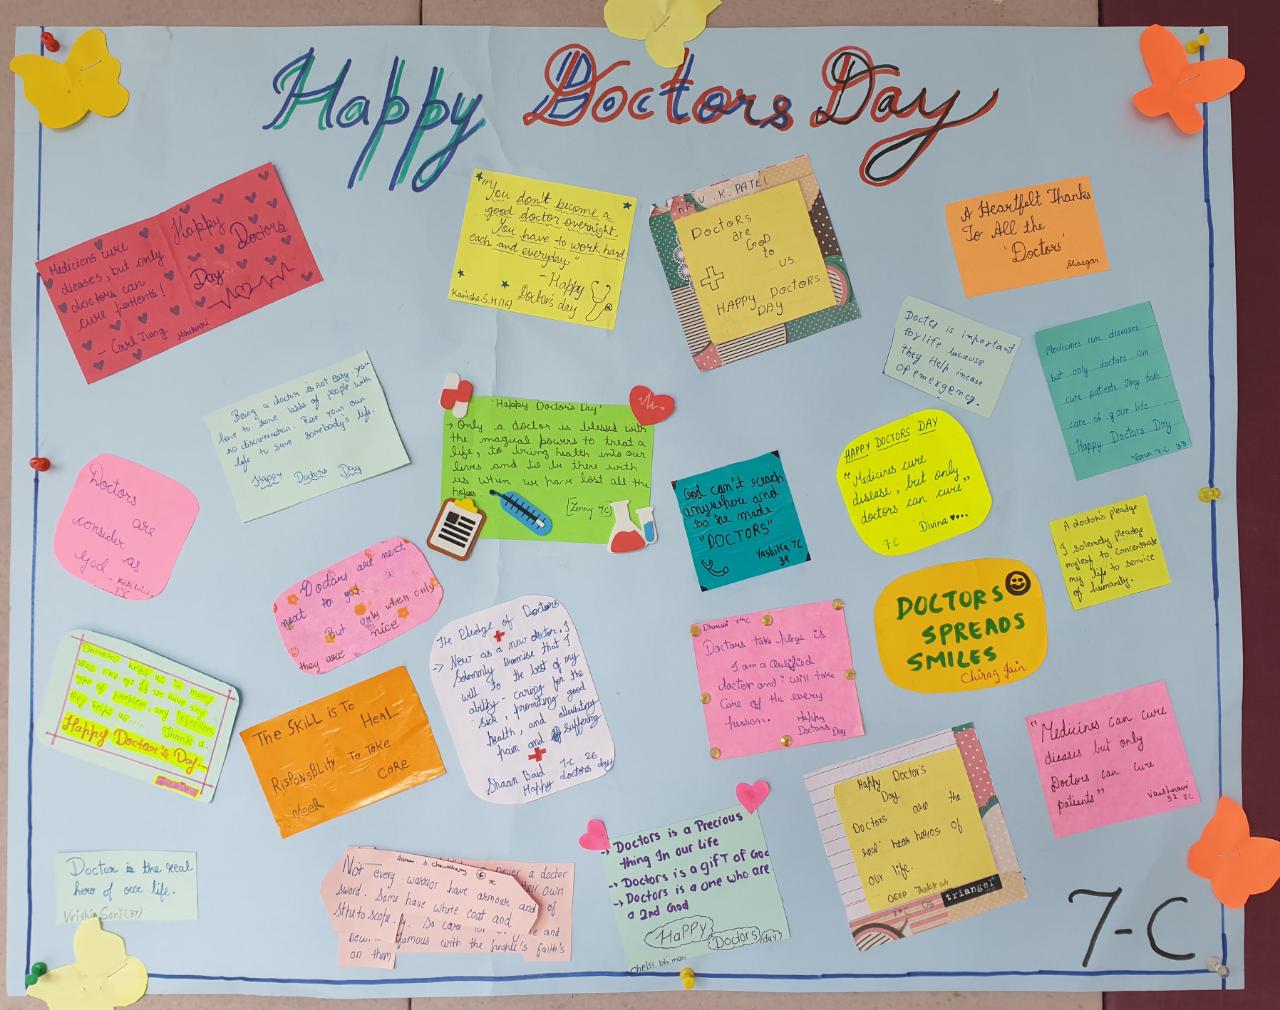 Happy Doctors Day
Mediciens cure
dieases, but only
doctors can
cure patients!
- Carl Jung
Happy
Doctors
Day
"You don't become a
good doctor overnight.
You have to work hard
each and everyday."
- Happy
Doctor's day
Kanisha.S.H(16)
K. PATEL
Doctors
are
God
to
us.
HAPPY DOCTORS
DAY
A Heartfelt Thanks
To All the
'Doctors'
Docter is important
for life because
they Help incase
of emergency.
Medicines cure diseases
but only doctors can
cure patients they take
care of your life
Happy Doctors Day
7-C 33
Being a doctor is not easy you
have to save lakhs of people with
no discrimination. Rise your own
life to save somebody's life.
Happy Doctors Day
'Happy Doctor's Day'
→ Only a doctor is blessed with
the magical powers to treat a
life, to bring health into our
lives and to be there with
us when we have lost all the
hopes
[Zenny 7C]
God can't reach
anywhere and
so he made
"DOCTORS"
Yashika 7C
39
HAPPY DOCTORS DAY
"Medicines cure
disease, but only
doctors can cure"
Divina
7C
Doctors
are
consider
as
God
7C
A doctor's pleadge
I solemely pleadge
myself to concentrate
my life to service
of humanity.
Doctors are next
next to god.
But only when only
they are nice
The Pledge of Doctors
→ Now as a new doctor, I
solemnly promise that I
will to the best of my
ability - caring for the
sick, promoting good
health, and alleviating
pain and suffering
Shaan Baid 7-C 26
Happy doctors day
Dhruvi 7C
Doctors take pledge is
I am a Qulified
doctor and i will take
care of the every
person.
Happy
Doctors Day
DOCTORS
SPREADS
SMILES
Chirag Jain
Doctors helps us in many
way
type of problem, any infections
they helps us..... Thank u.
Happy Doctor's Day
The SKill is To HeaL
RisPonsBLity To TAKe
CARe
"Medicines can cure
dieases but only
Doctors can cure
patients"
Vaishnavi
32 7C
Happy Doctor's
Day
Doctors are the
real heros of
our life.
DEEP
7C
triangel
Doctor is the real
hero of our life.
Vrishin Soni(37)
Aarav S. Chowdhary
Not every warrior have armour and
sword. Some have white coat and
Sthetoscope.
never a doctor
their own
of
famous with the people's faith's
on them
→ Doctors is a Precious
thing In our life
→ Doctors is a gift of God
→ Doctors is a one who are
a 2nd God
Happy
Doctors day
Chelsi bh
7-C